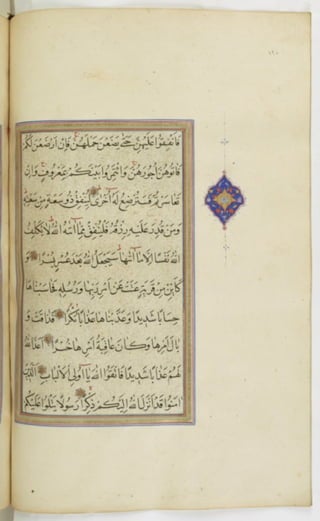 ١٢٠
فَاَنْفِقُوا عَلَيْهِنَّ حَتّٰى يَضَعْنَ حَمْلَهُنَّ فَاِنْ اَرْضَعْنَ لَكُمْ
فَاٰتُوهُنَّ اُجُورَهُنَّ وَاْتَمِرُوا بَيْنَكُمْ بِمَعْرُوفٍ وَاِنْ
تَعَاسَرْتُمْ فَسَتُرْضِعُ لَهُ اُخْرٰى لِيُنْفِقْ ذُو سَعَةٍ مِنْ سَعَتِهِ
وَمَنْ قُدِرَ عَلَيْهِ رِزْقُهُ فَلْيُنْفِقْ مِمَّا اٰتٰيهُ اللّٰهُ لَا يُكَلِّفُ
اللّٰهُ نَفْسًا اِلَّا مَا اٰتٰيهَا سَيَجْعَلُ اللّٰهُ بَعْدَ عُسْرٍ يُسْرًا وَ
كَاَيِّنْ مِنْ قَرْيَةٍ عَتَتْ عَنْ اَمْرِ رَبِّهَا وَرُسُلِهِ فَحَاسَبْنَاهَا
حِسَابًا شَدِيدًا وَعَذَّبْنَاهَا عَذَابًا نُكْرًا فَذَاقَتْ وَ
بَالَ اَمْرِهَا وَكَانَ عَاقِبَةُ اَمْرِهَا خُسْرًا اَعَدَّ اللّٰهُ
لَهُمْ عَذَابًا شَدِيدًا فَاتَّقُوا اللّٰهَ يَا اُولِى الْاَلْبَابِ الَّذِينَ
اٰمَنُوا قَدْ اَنْزَلَ اللّٰهُ اِلَيْكُمْ ذِكْرًا رَسُولًا يَتْلُوا عَلَيْكُمْ